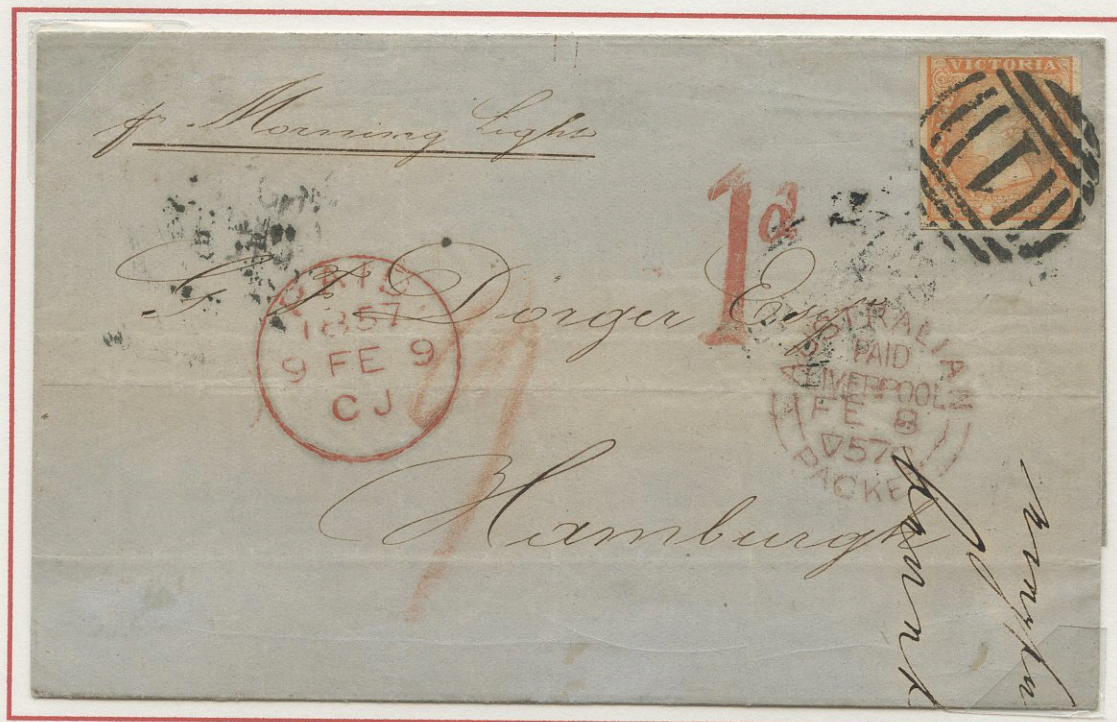 VICTORIA
1
pr Morning Light
1d
G. J. Dörger Esqr
Hamburgh
1857
9 FE 9
CJ
AUSTRALIAN
PAID
LIVERPOOL
FE 8
57
PACKET